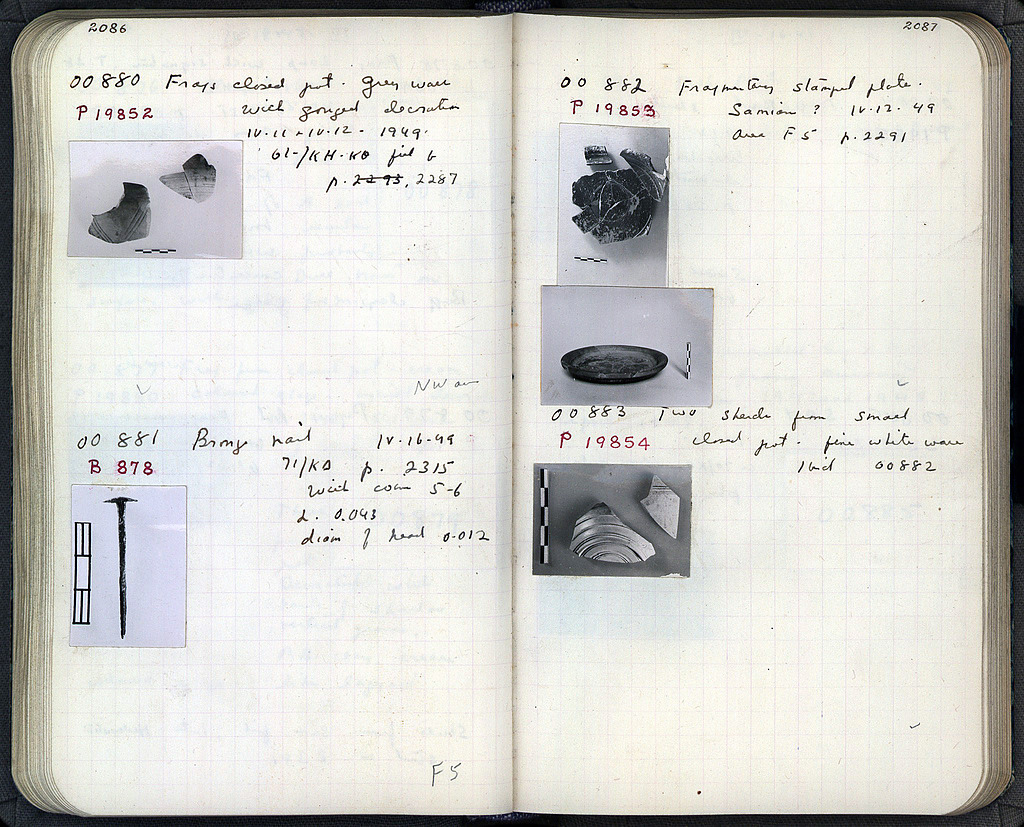 2086
OO 880 Frags closed pot. Grey ware
P 19852 with gouged decoration
IV·11 - IV·12 - 1949·
61-/KH-KO 6
p. 2295, 2287
NW
OO 881 Bronze nail IV-16-49
B 878 71/KO p. 2315
With coin 5-6
L. 0.043
diam of head 0.012
F5
2087
OO 882 Fragmentary stamped plate.
P 19853 Samian? IV-12-49
Area F5 p. 2291
OO 883 Two sherds from small
P 19854 closed pot. fine white ware
Ibid OO882